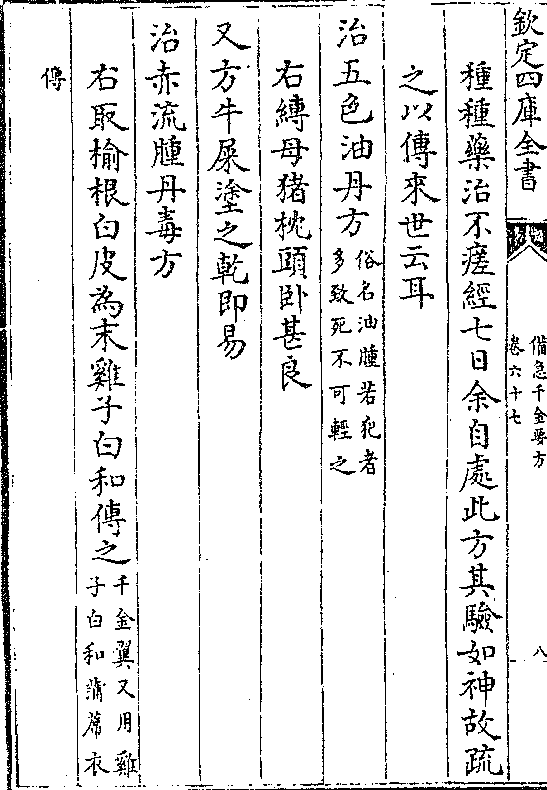 欽定四庫全書
備急千金要方
卷六十七
八
種種藥治不瘥經七日余自處此方其驗如神故疏
之以傳來世云耳
治五色油丹方
俗名油腫若犯者
多致死不可輕之
右縛母猪枕頭卧甚良
又方牛屎塗之乾即易
治赤流腫丹毒方
右取榆根白皮為末雞子白和傅之
千金翼又用雞
子白和蒲席衣
傅